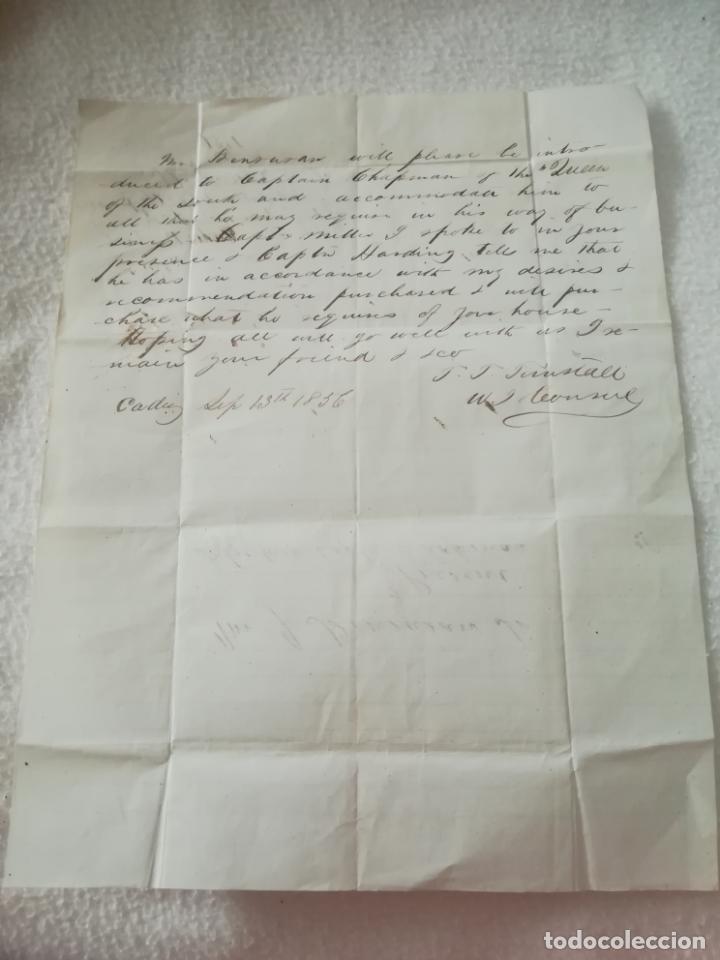 Mr. Bensusan will please be intro-
duced to Captain Chapman of the "Queen
of the South and accommodate him to
all that he may require in his way of bu-
siness. Capt. Miller I spoke to in your
presence & Captn Harding tells me that
he has in accordance with my desires &
recommendation purchased & will pur-
chase what he requires of your house -
Hoping all will go well with us I re-
main your friend & so
T. T. Tunstall
Cadiz Sep 13th 1856
U.S. Consul
todocoleccion
todocoleccion.net